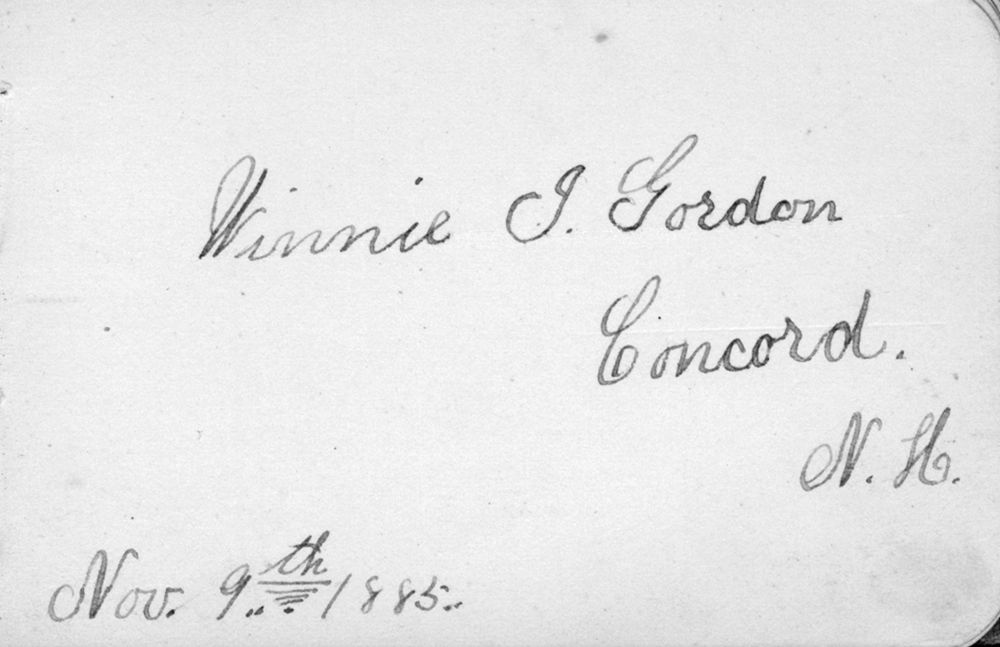 Winnie I. Gordon
Concord.
N. H.
Nov. 9th 1885.